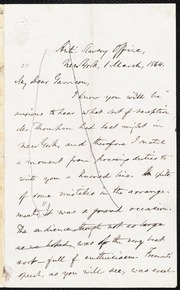 Anti-Slavery Office,
New York, 1 March, 1864.
My Dear Garrison,
I know you will be
anxious to hear what sort of reception
Mr. Thompson had last night in
New York, and therefore I snatch
a moment from pressing duties to
write you a hurried line. In spite
of some mistakes in the arrange-
ments, it was a grand occasion.
The audience, though not so large
as we hoped, was of the very best
sort—full of enthusiasm. Thompson's
speech, as you will see, was